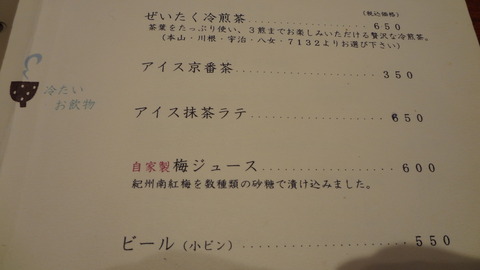 (税込価格)
ぜいたく冷煎茶 650
茶葉をたっぷり使い、3煎までお楽しみいただける贅沢な冷煎茶。
(本山・川根・宇治・八女・7132よりお選び下さい)
アイス京番茶 350
冷たい
お飲物
アイス抹茶ラテ 650
自家製 梅ジュース 600
紀州南紅梅を数種類の砂糖で漬け込みました。
ビール (小ビン) 550